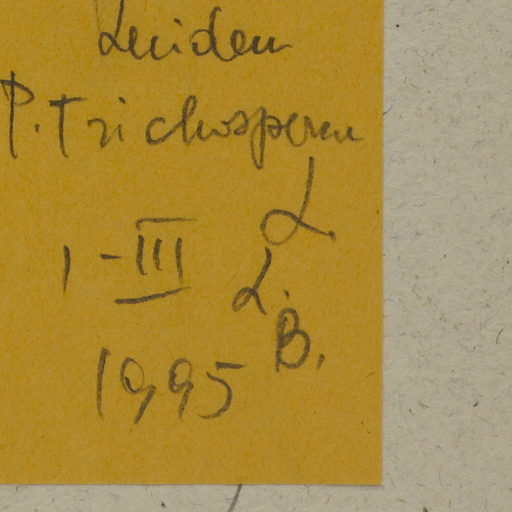 Leiden
P. Trichosperm
L
1-III
L.
B.
1995